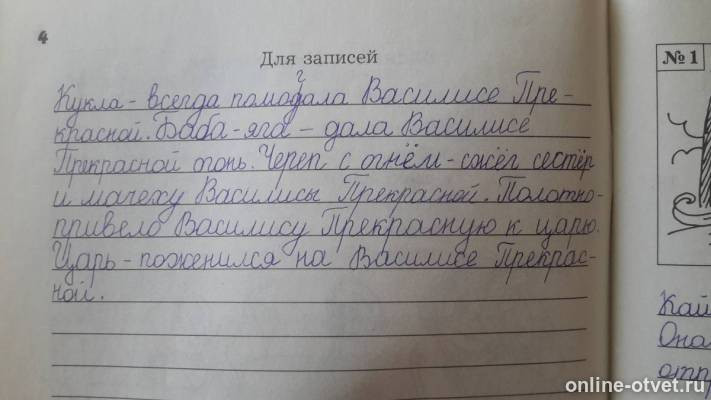 4
Для записей
Кукла - всегда помогала Василисе Пре-
красной. Баба-яга - дала Василисе
Прекрасной огонь. Череп с огнём - сжёг сестёр
и мачеху Василисы Прекрасной. Полотно-
привело Василису Прекрасную к царю.
Царь - поженился на Василисе Прекрас-
ной.
№ 1
Кай
Она
отпр
online-otvet.ru